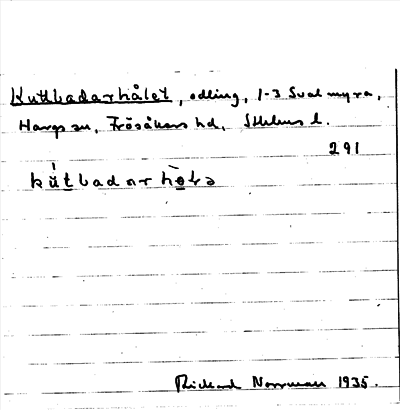 Kuttbadarhålet, odling, 1-3 Svalmyra,
Hargs sn, Frösåkers hd, Sthlms l.
291
kùtbadarhola
Rickard Norrman 1935.